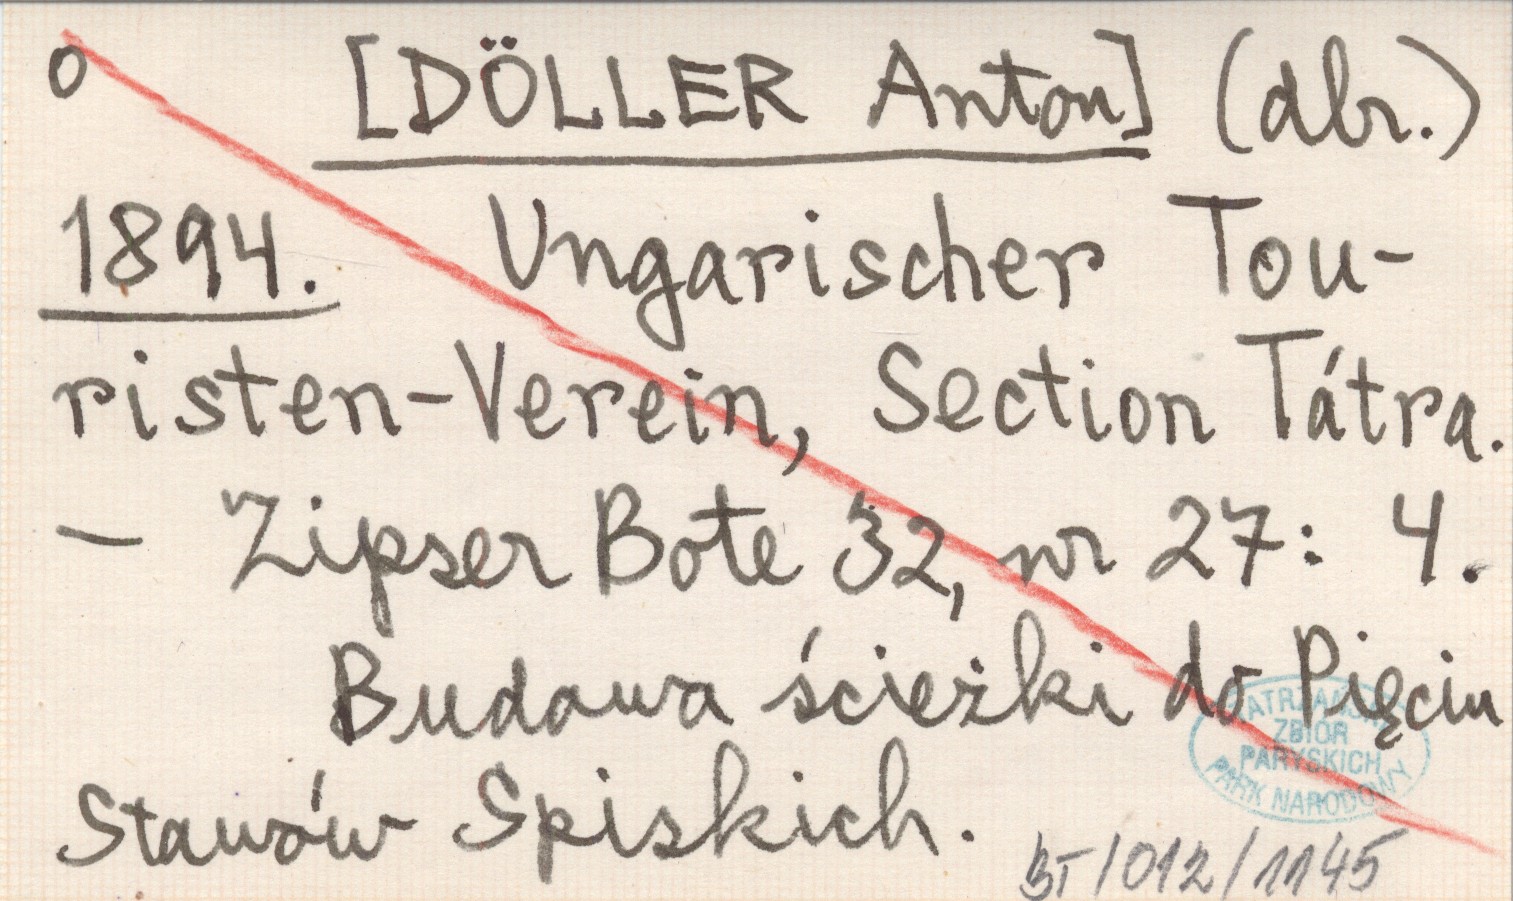 o [DÖLLER Anton] (dbr.)
1894. Ungarischer Tou-
risten-Verein, Section Tátra.
— Zipser Bote 32, nr 27: 4.
Budowa ścieżki do Pięciu
Stawów Spiskich.
TATRZAŃSKI
ZBIÓR
PARYSKICH
PARK NARODOWY
BT/012/1145